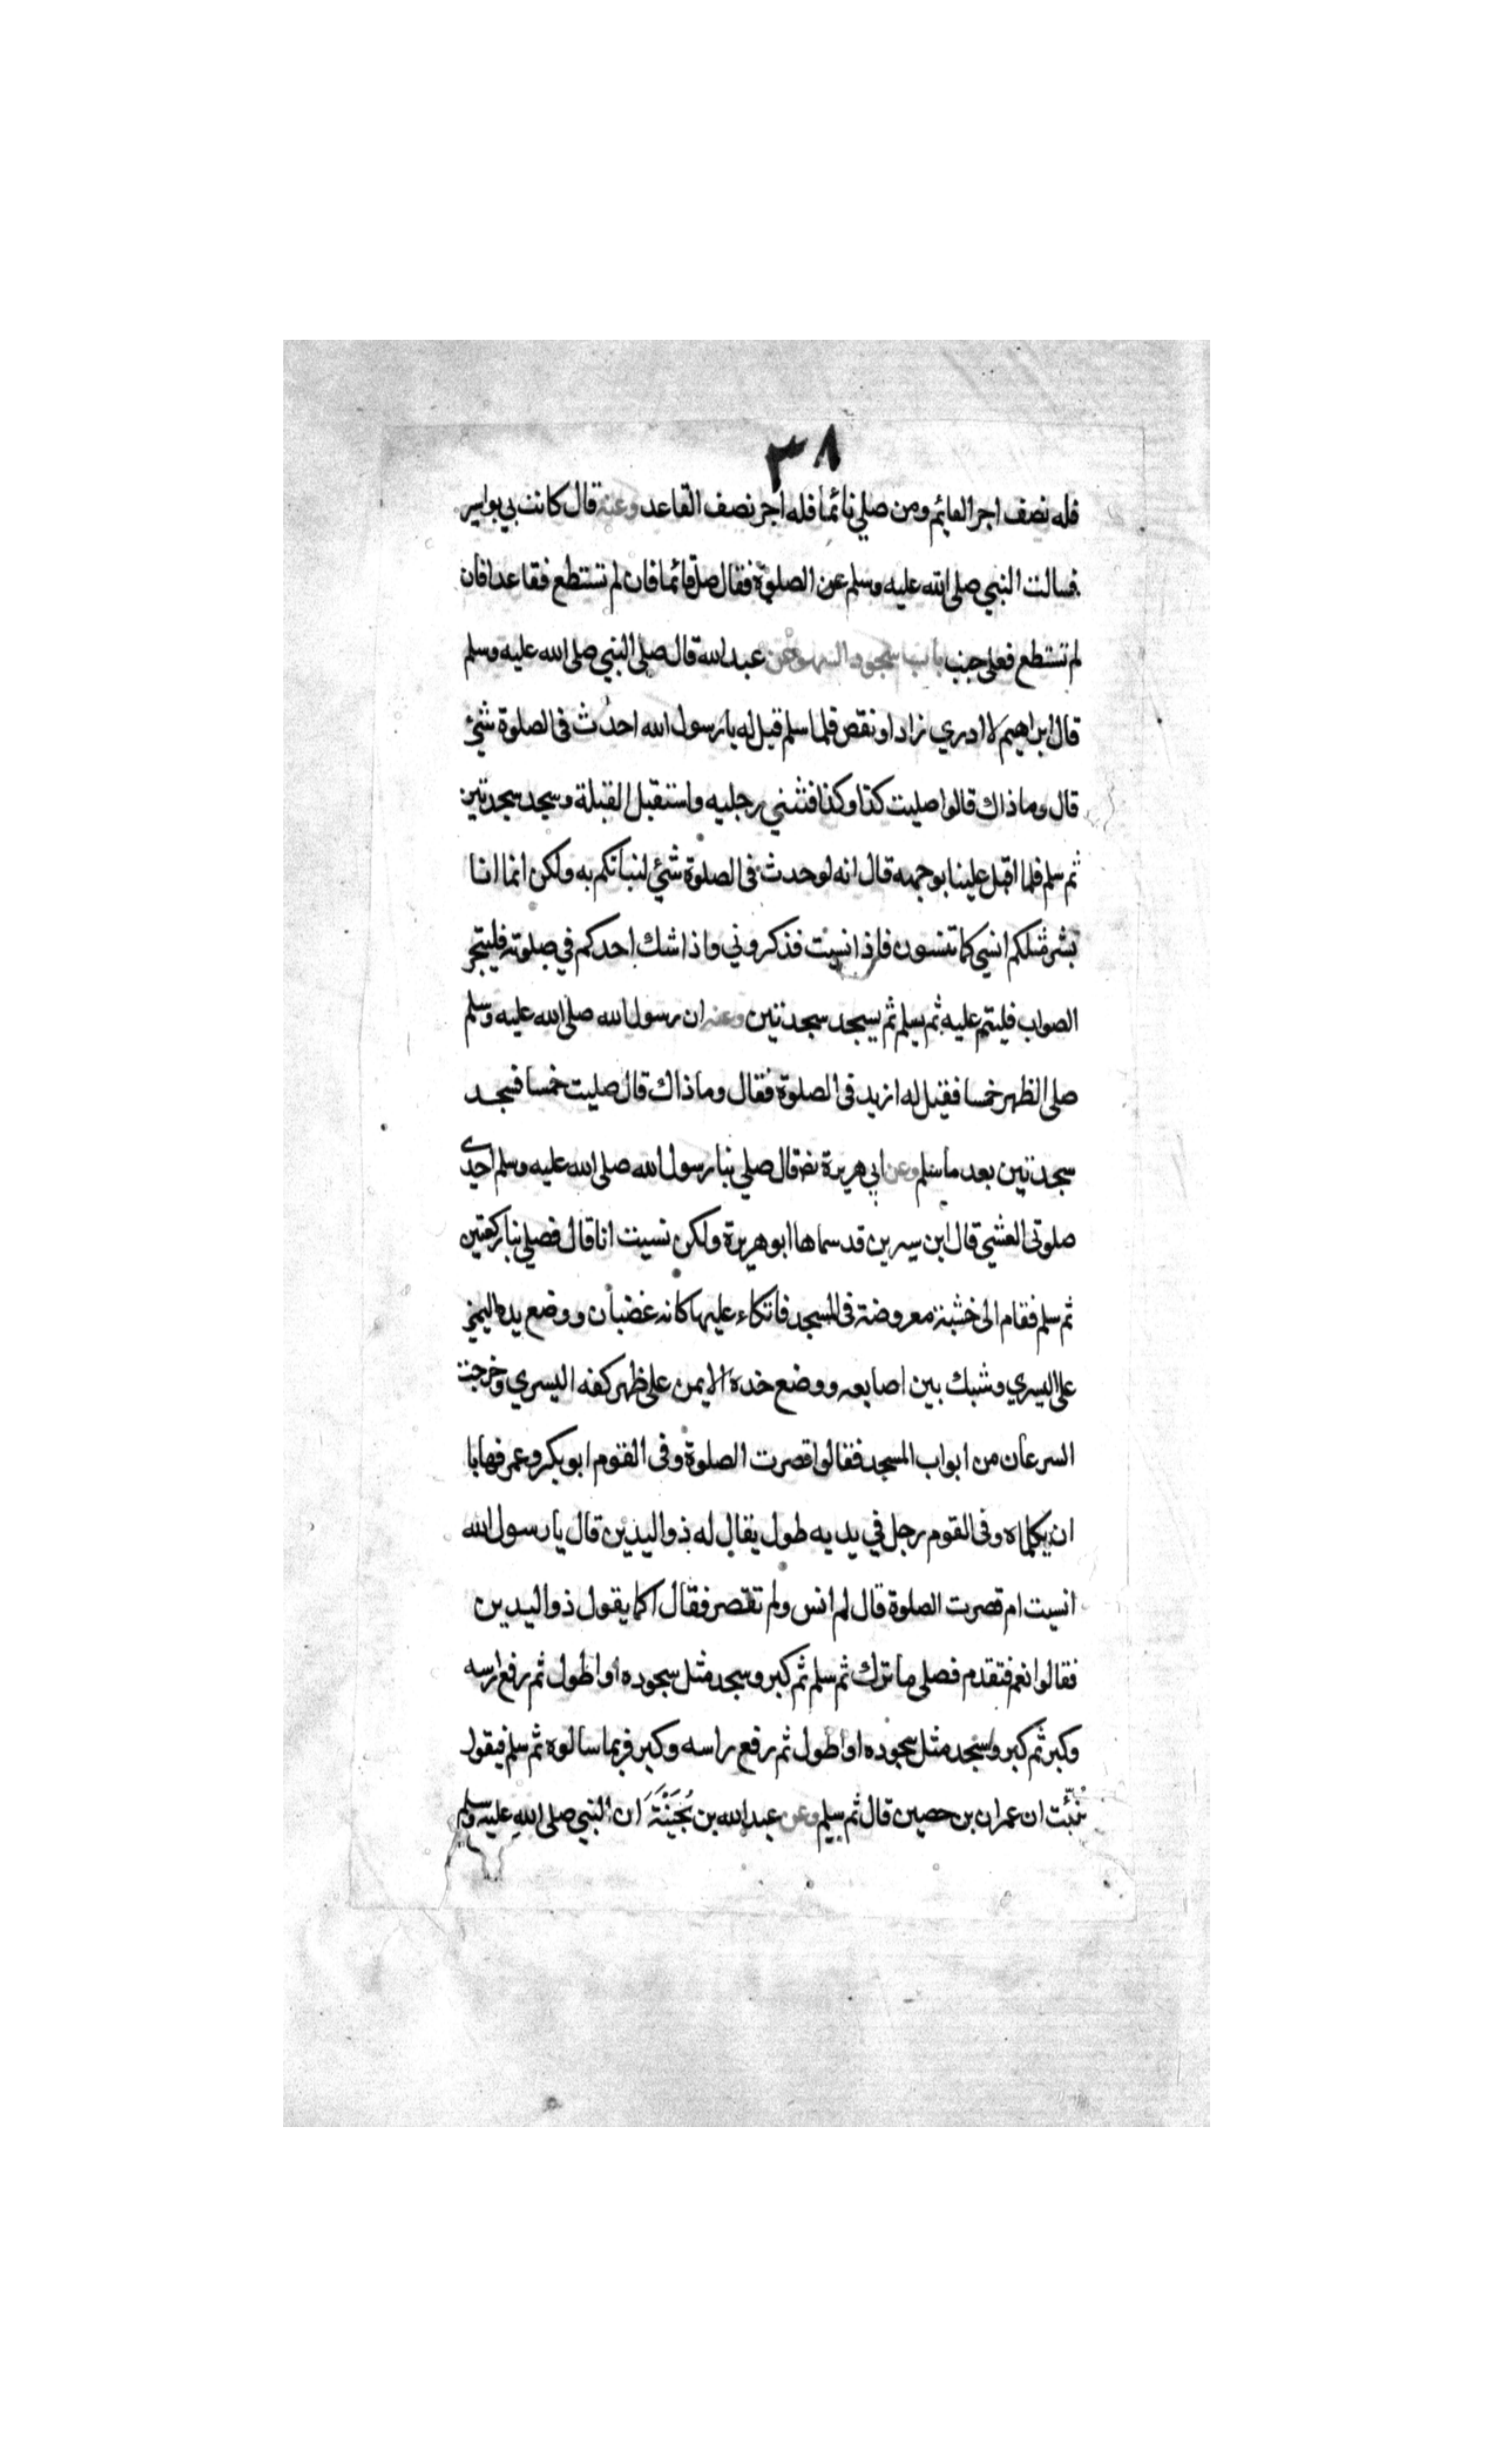 ٣٨
فله نصف اجر القايم ومن صلي نائما فله اجر نصف القاعد وعنه قال كانت بي بواسير
فسالت النبي صلى الله عليه وسلم عن الصلوة فقال صل قائما فان لم تستطع فقاعدا فان
لم تستطع فعلى جنب باب سجود السهو عن عبد الله قال صلى النبي صلى الله عليه وسلم
قال ابراهيم لا ادري زاد او نقص فلما سلم قيل له يا رسول الله احدث فى الصلوة شئ
قال وما ذاك قالوا صليت كذا وكذا فثنني رجليه واستقبل القبلة وسجد سجدتين
ثم سلم فلما اقبل علينا بوجهه قال انه لو حدث فى الصلوة شئ لنباتكم به ولكن انما انا
بشر مثلكم انسي كما تنسون فاذا نسيت فذكروني واذا شك احدكم في صلوته فليتحر
الصواب فليتم عليه ثم يسلم ثم يسجد سجدتين وعنه ان رسول الله صلى الله عليه وسلم
صلى الظهر خمسا فقيل له ازيد فى الصلوة فقال وما ذاك قال صليت خمسا فسجد
سجدتين بعد ما سلم وعن ابي هريرة رضه قال صلي بنا رسول الله صلى الله عليه وسلم احدي
صلوتى العشي قال ابن سيرين قد سماها ابو هريرة ولكن نسيت انا قال فصلي بنا ركعتين
ثم سلم فقام الى خشبة معروضة فى المسجد فاتكاء عليها كانه غضبان ووضع يده اليمني
على اليسري وشبك بين اصابعه ووضع خده الايمن على ظهر كفه اليسري وخرجت
السرعان من ابواب المسجد فقالوا قصرت الصلوة وفى القوم ابو بكر وعمر فهابا
ان يكلماه وفى القوم رجل في يديه طول يقال له ذو اليدين قال يا رسول الله
انسيت ام قصرت الصلوة قال لم انس ولم تقصر فقال اكما يقول ذو اليدين
فقالوا نعم فتقدم فصلى ما ترك ثم سلم ثم كبر وسجد مثل سجوده او اطول ثم رفع راسه
وكبر ثم كبر وسجد مثل سجوده او اطول ثم رفع راسه وكبر فربما سالوه ثم سلم فيقول
نُبِّئت ان عمران بن حصين قال ثم سلم وعن عبد الله بن بُحَيْنَة ان النبي صلى الله عليه وسلم